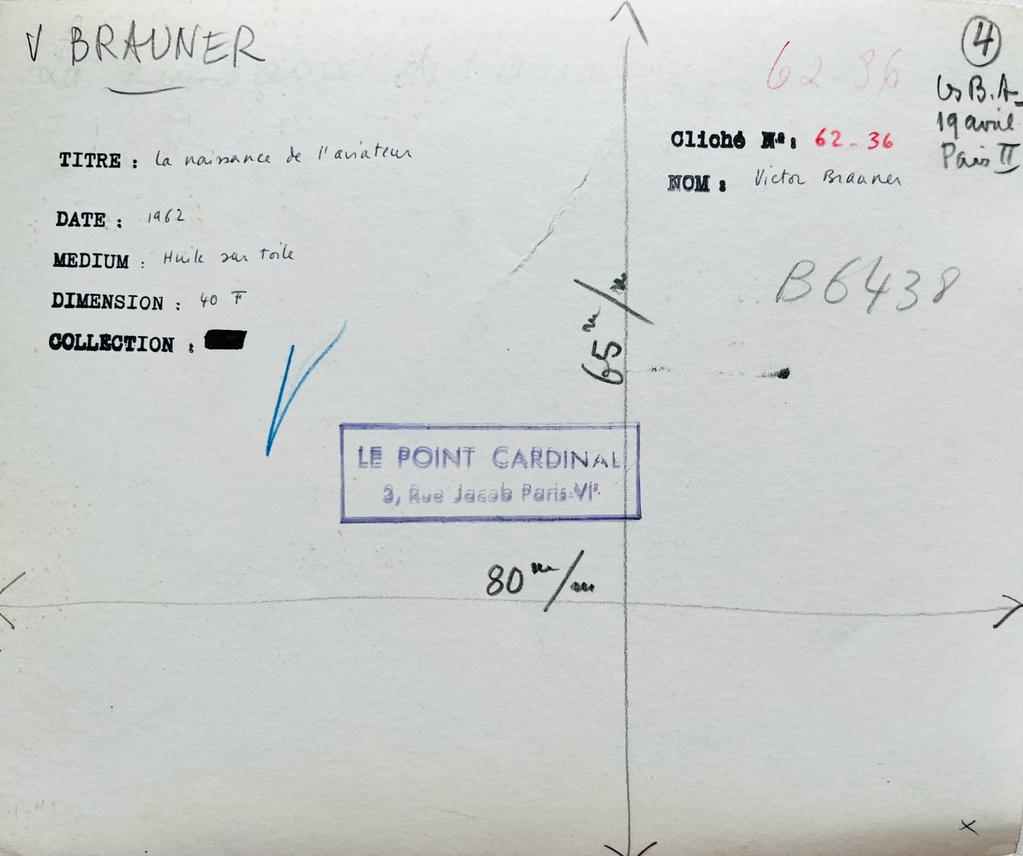 V BRAUNER
62 36
4
Les B.A.
19 avril
Paris II
Cliché Nº: 62-36
NOM : Victor Brauner
TITRE : La naissance de l'aviateur
DATE : 1962
MEDIUM : Huile sur toile
DIMENSION : 40 F
COLLECTION :
B6438
65 m/m
LE POINT CARDINAL
3, Rue Jacob Paris-VIe
80 m/m
x